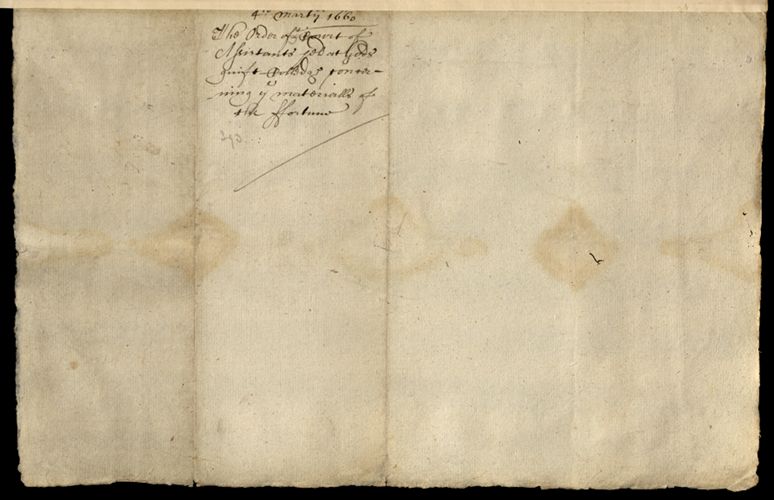 4th Martij 1660
The Order of ye Court of
Assistants held at Gods
guift Colledg concer-
ning ye materialls of
the ffortune